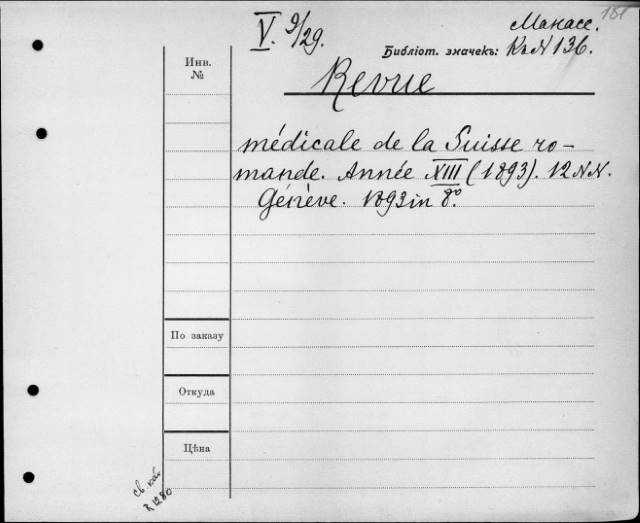 181
V. 9/29.
Манасс.
Библіот. значекъ: Къ N 136.
Инв. №
Revue
médicale de la Suisse ro-
mande. Année XIII (1893). 12 NN.
Génève. 1893 in 8º.
По заказу
Откуда
Цѣна
св. каб.